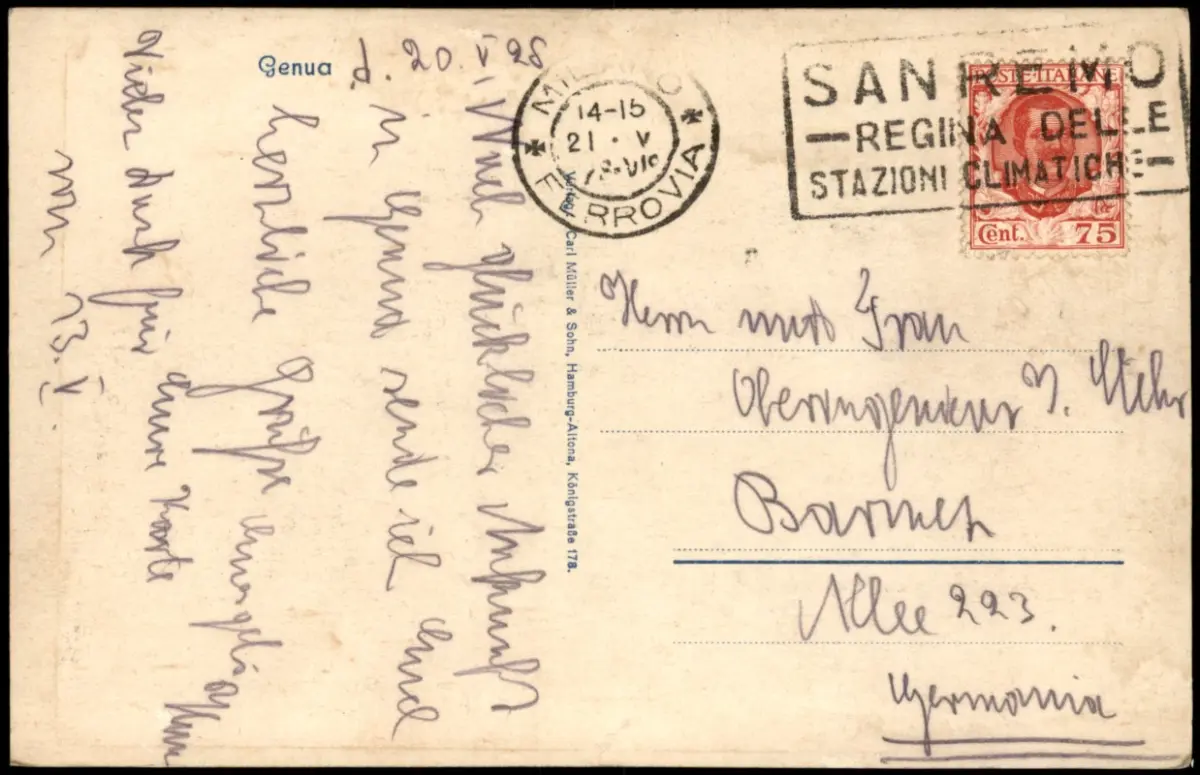 Genua d. 20. V 28
Nach glücklicher Ankunft
in Genua sende ich Euch
herzliche Grüße
Vielen Dank für Eure Karte
vom 13. V
MILANO
14-15
21 · V
FERROVIA
SANREMO
—REGINA DELLE
STAZIONI CLIMATICHE—
POSTE·ITALIANE
Cent. 75
Verlag: Carl Müller & Sohn, Hamburg-Altona, Königstraße 178.
Herrn und Frau
Oberingenieur
Barmen
Allee 223.
Germania